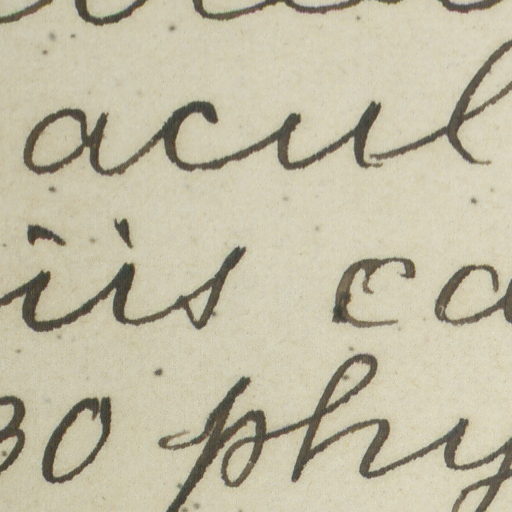 acul
iis ca
30 phy